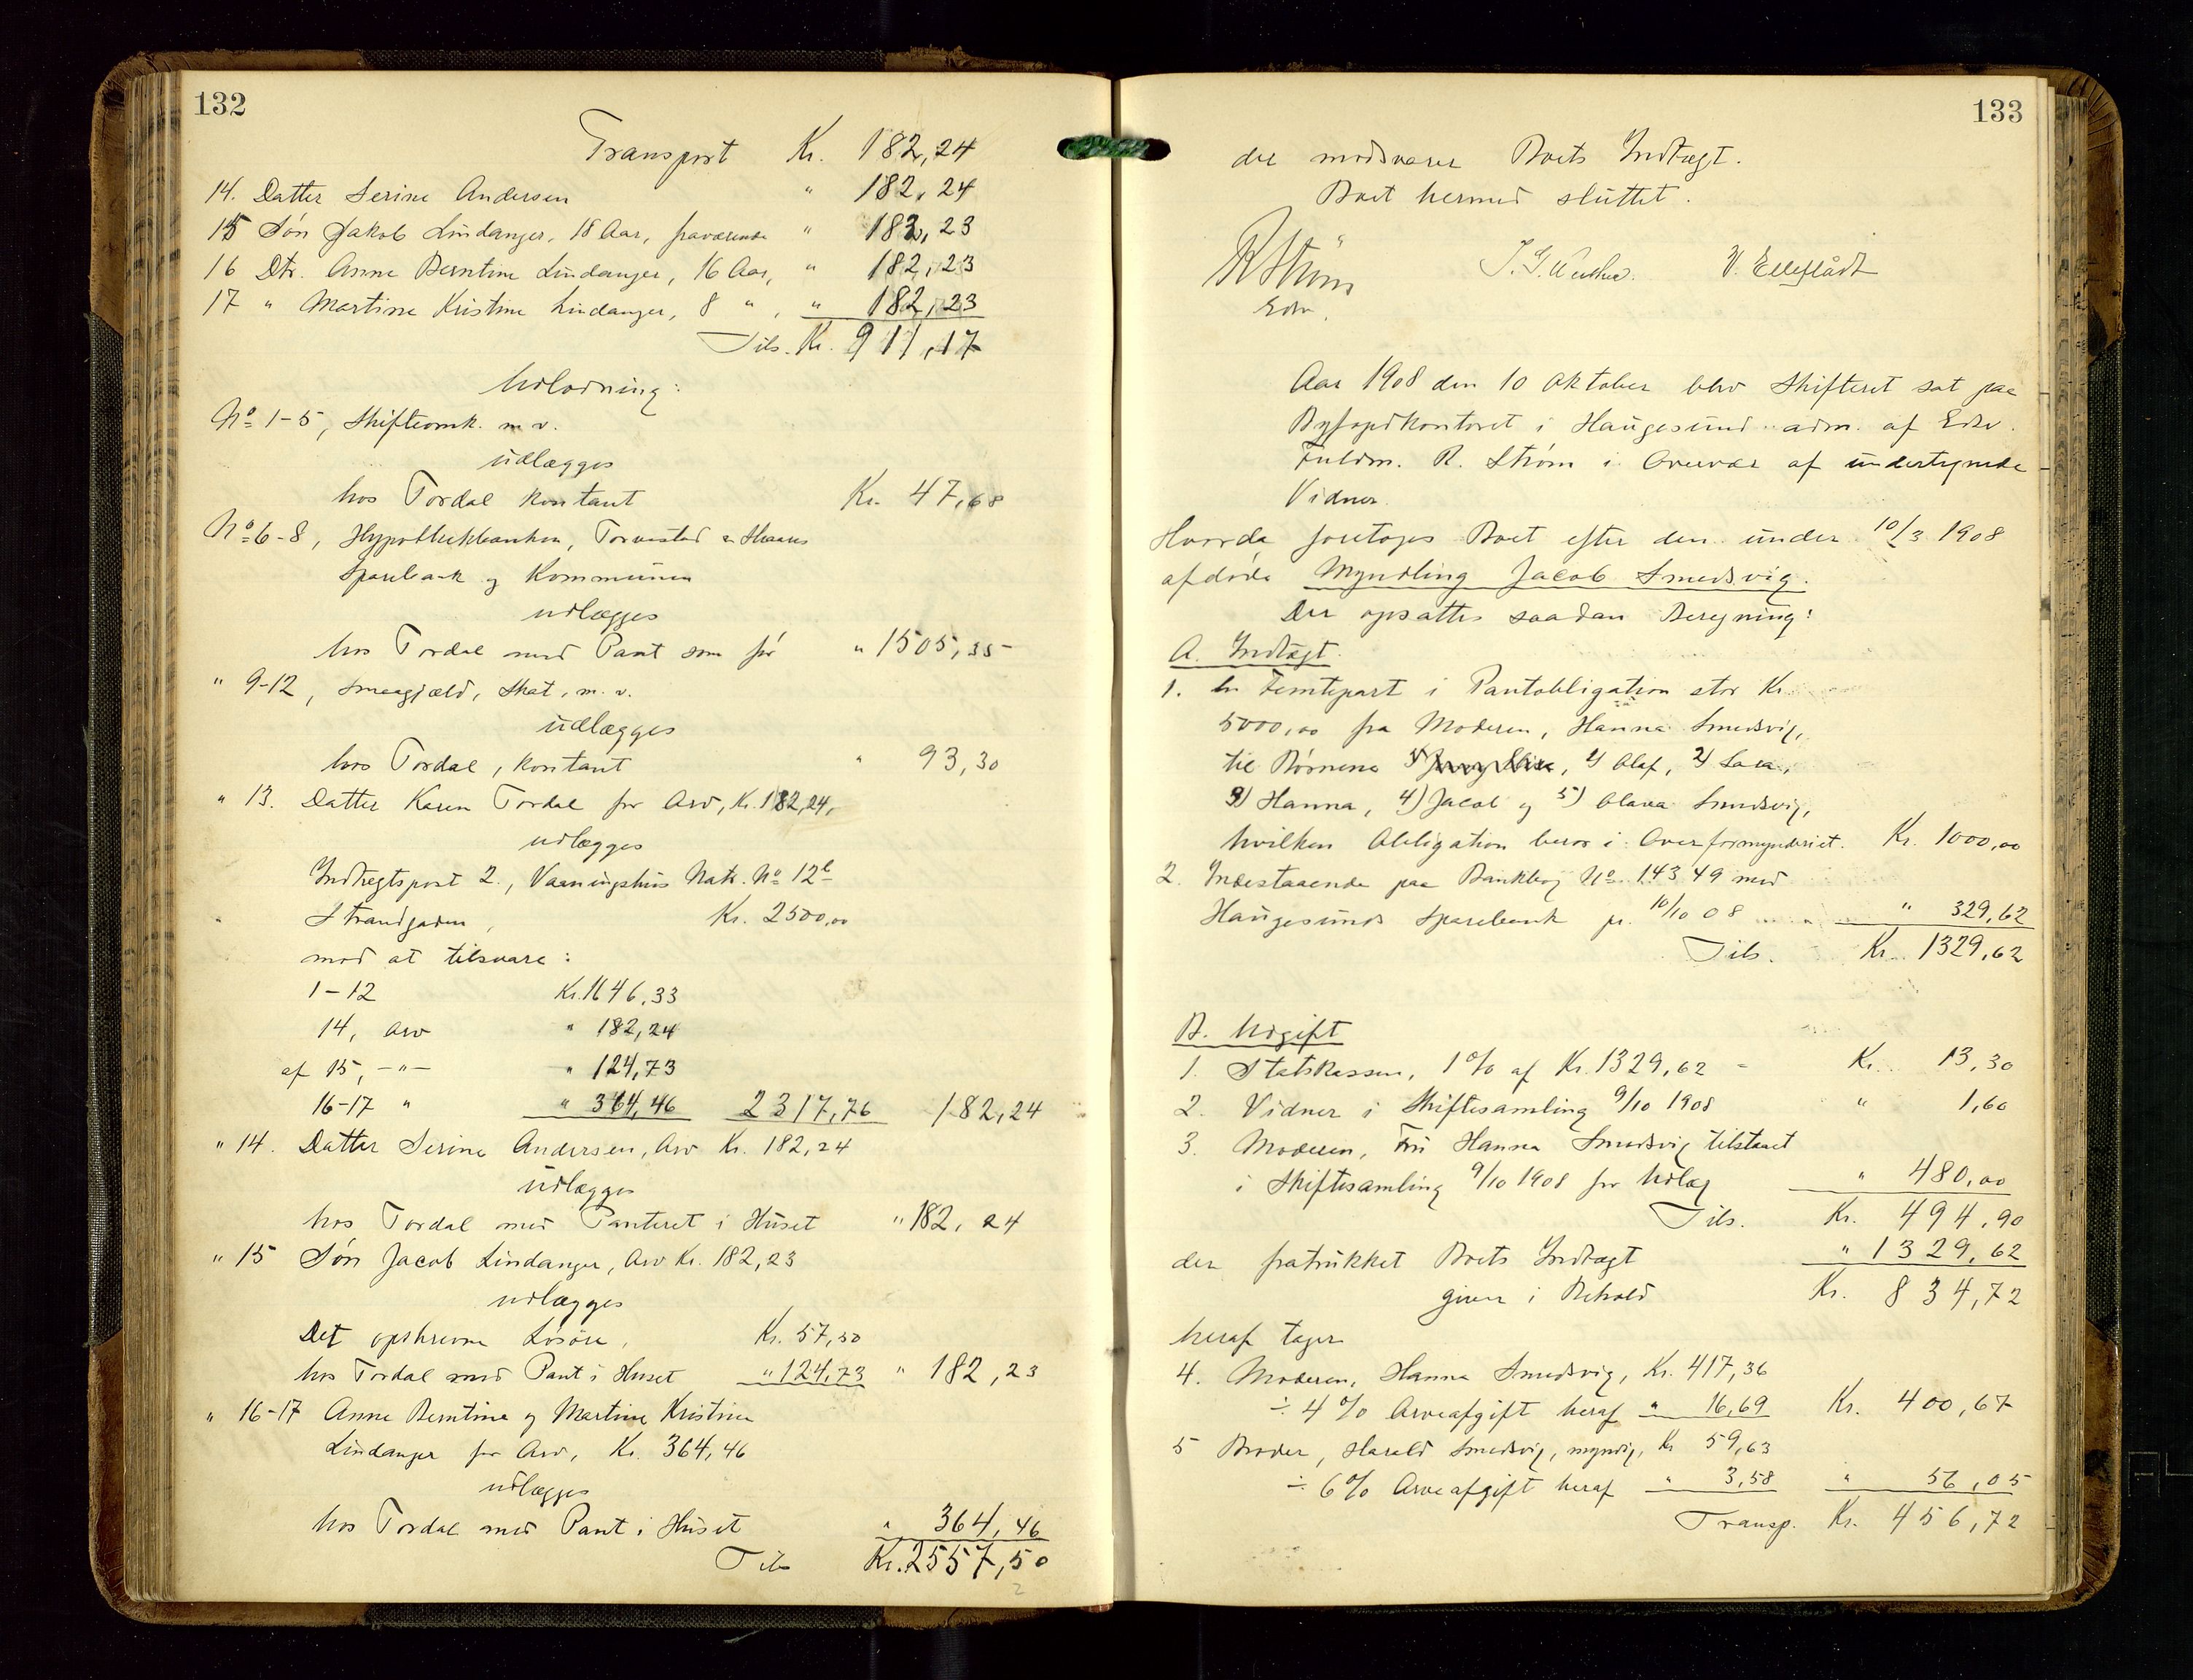 132
Transport Kr. 182,24
14. Datter Serine Andersen " 182,24
15 Søn Jakob Lindanger, 18 Aar, fraværende " 182,23
16 Dtr. Anne Berntine Lindanger, 16 Aar, " 182,23
17 " Martine Kristine Lindanger, 8 " , " 182,23
Tils. Kr. 911,17
Udlodning:
No 1-5, Skifteomk. m v.
udlægges
hos Tordal kontant Kr. 47,68
No 6-8, Hypothekbanken, Torvestad & Skaare
Sparebank og Kommunen
udlægges
hos Tordal med Pant som før " 1505,35
" 9-12, Smaagjæld, Skat, m. v.
udlægges
hos Tordal, kontant " 93,30
" 13. Datter Karen Tordal for Arv, Kr. 182,24,
udlægges
Indtægtspost 2., Vaaningshus Matr. No 12b
Strandgaden, Kr. 2500,00
mod at tilsvare:
1-12 Kr. 1646,33
14, Arv " 182,24
af 15, -"- " 124,73
16-17 " " 364,46 2317,76 182,24
" 14. Datter Serine Andersen, Arv Kr. 182,24
udlægges
hos Tordal med Panteret i Huset " 182,24
" 15 Søn Jacob Lindanger, Arv Kr. 182,23
udlægges
Det opskrevne Løsøre, Kr. 57,50
hos Tordal med Pant i Huset " 124,73 " 182,23
" 16-17 Anne Berntine og Martine Kristine
Lindanger for Arv, Kr. 364,46
udlægges
hos Tordal med Pant i Huset " 364,46
Tils Kr. 2557,50
2
133
der modsvarer Boets Indtægt.
Boet hermed sluttet.
R Strøm
Edsv.
Aar 1908 den 10 Oktober blev Skifteret sat paa
Byfogdkontoret i Haugesund adm. af Edsv.
Fuldm. R. Strøm i Overvær af undertegnede
Vidner.
Hvorda foretoges Boet efter den under 10/3 1908
afdøde Myndling Jacob Smedsvig.
Der opsattes saadan Beregning:
A. Indtægt.
1. En Femtepart i Pantobligation stor Kr.
5000,00 fra Moderen, Hanna Smedsvig,
til Børnene 1) Olaf, 2) Sara,
3) Hanna, 4) Jacob og 5) Olava Smedsvig,
hvilken Obligation beror i Overformynderiet. Kr. 1000,00
2. Indestaaende paa Bankbog No. 14349 med
Haugesunds Sparebank pr. 10/10 08 " 329,62
Tils. Kr. 1329,62
B. Udgift
1. Statskassen, 1% af Kr. 1329,62 - Kr. 13,30
2. Vidner i Skiftesamling 9/10 1908 " 1,60
3. Moderen, Fru Hanna Smedsvig tilstaaet
i Skiftesamling 9/10 1908 for Udlæg " 480,00
Tils. Kr. 494,90
der fratrukket Boets Indtægt " 1329,62
giver i Behold Kr. 834,72
heraf tager
4. Moderen, Hanna Smedsvig, Kr. 417,36
÷ 4% Arveafgift heraf " 16,69 Kr. 400,67
5 Broder, Harald Smedsvig, myndig, Kr 59,63
÷ 6% Arveafgift heraf " 3,58 " 56,05
Transp. Kr. 456,72